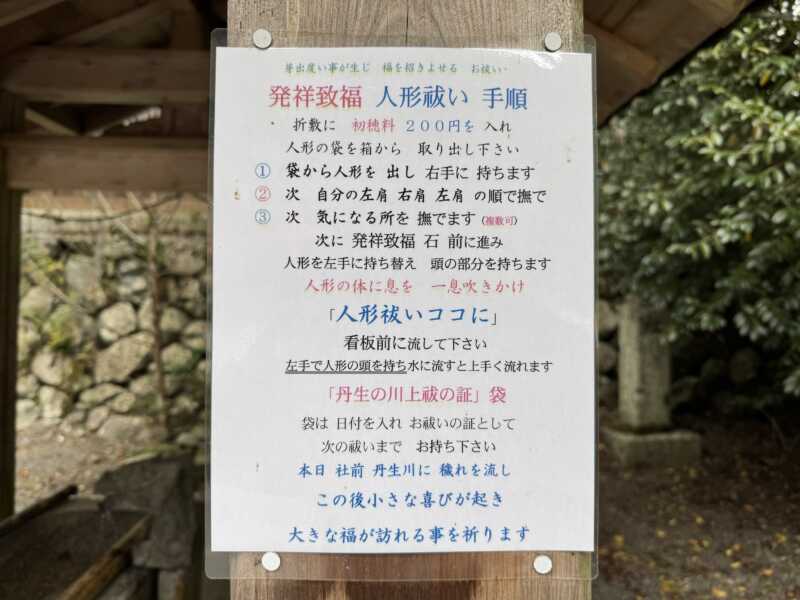 芽出度い事が生じ 福を招きよせる お祓い
発祥致福 人形祓い 手順
折敷に 初穂料 200円を 入れ
人形の袋を箱から 取り出し下さい
① 袋から人形を 出し 右手に 持ちます
② 次 自分の左肩 右肩 左肩 の順で撫で
③ 次 気になる所を 撫でます(複数可)
次に 発祥致福 石 前に進み
人形を左手に持ち替え 頭の部分を持ちます
人形の体に息を 一息吹きかけ
「人形祓いココに」
看板前に流して下さい
左手で人形の頭を持ち水に流すと上手く流れます
「丹生の川上祓の証」袋
袋は 日付を入れ お祓いの証として
次の祓いまで お持ち下さい
本日 社前 丹生川に 穢れを流し
この後小さな喜びが起き
大きな福が訪れる事を祈ります